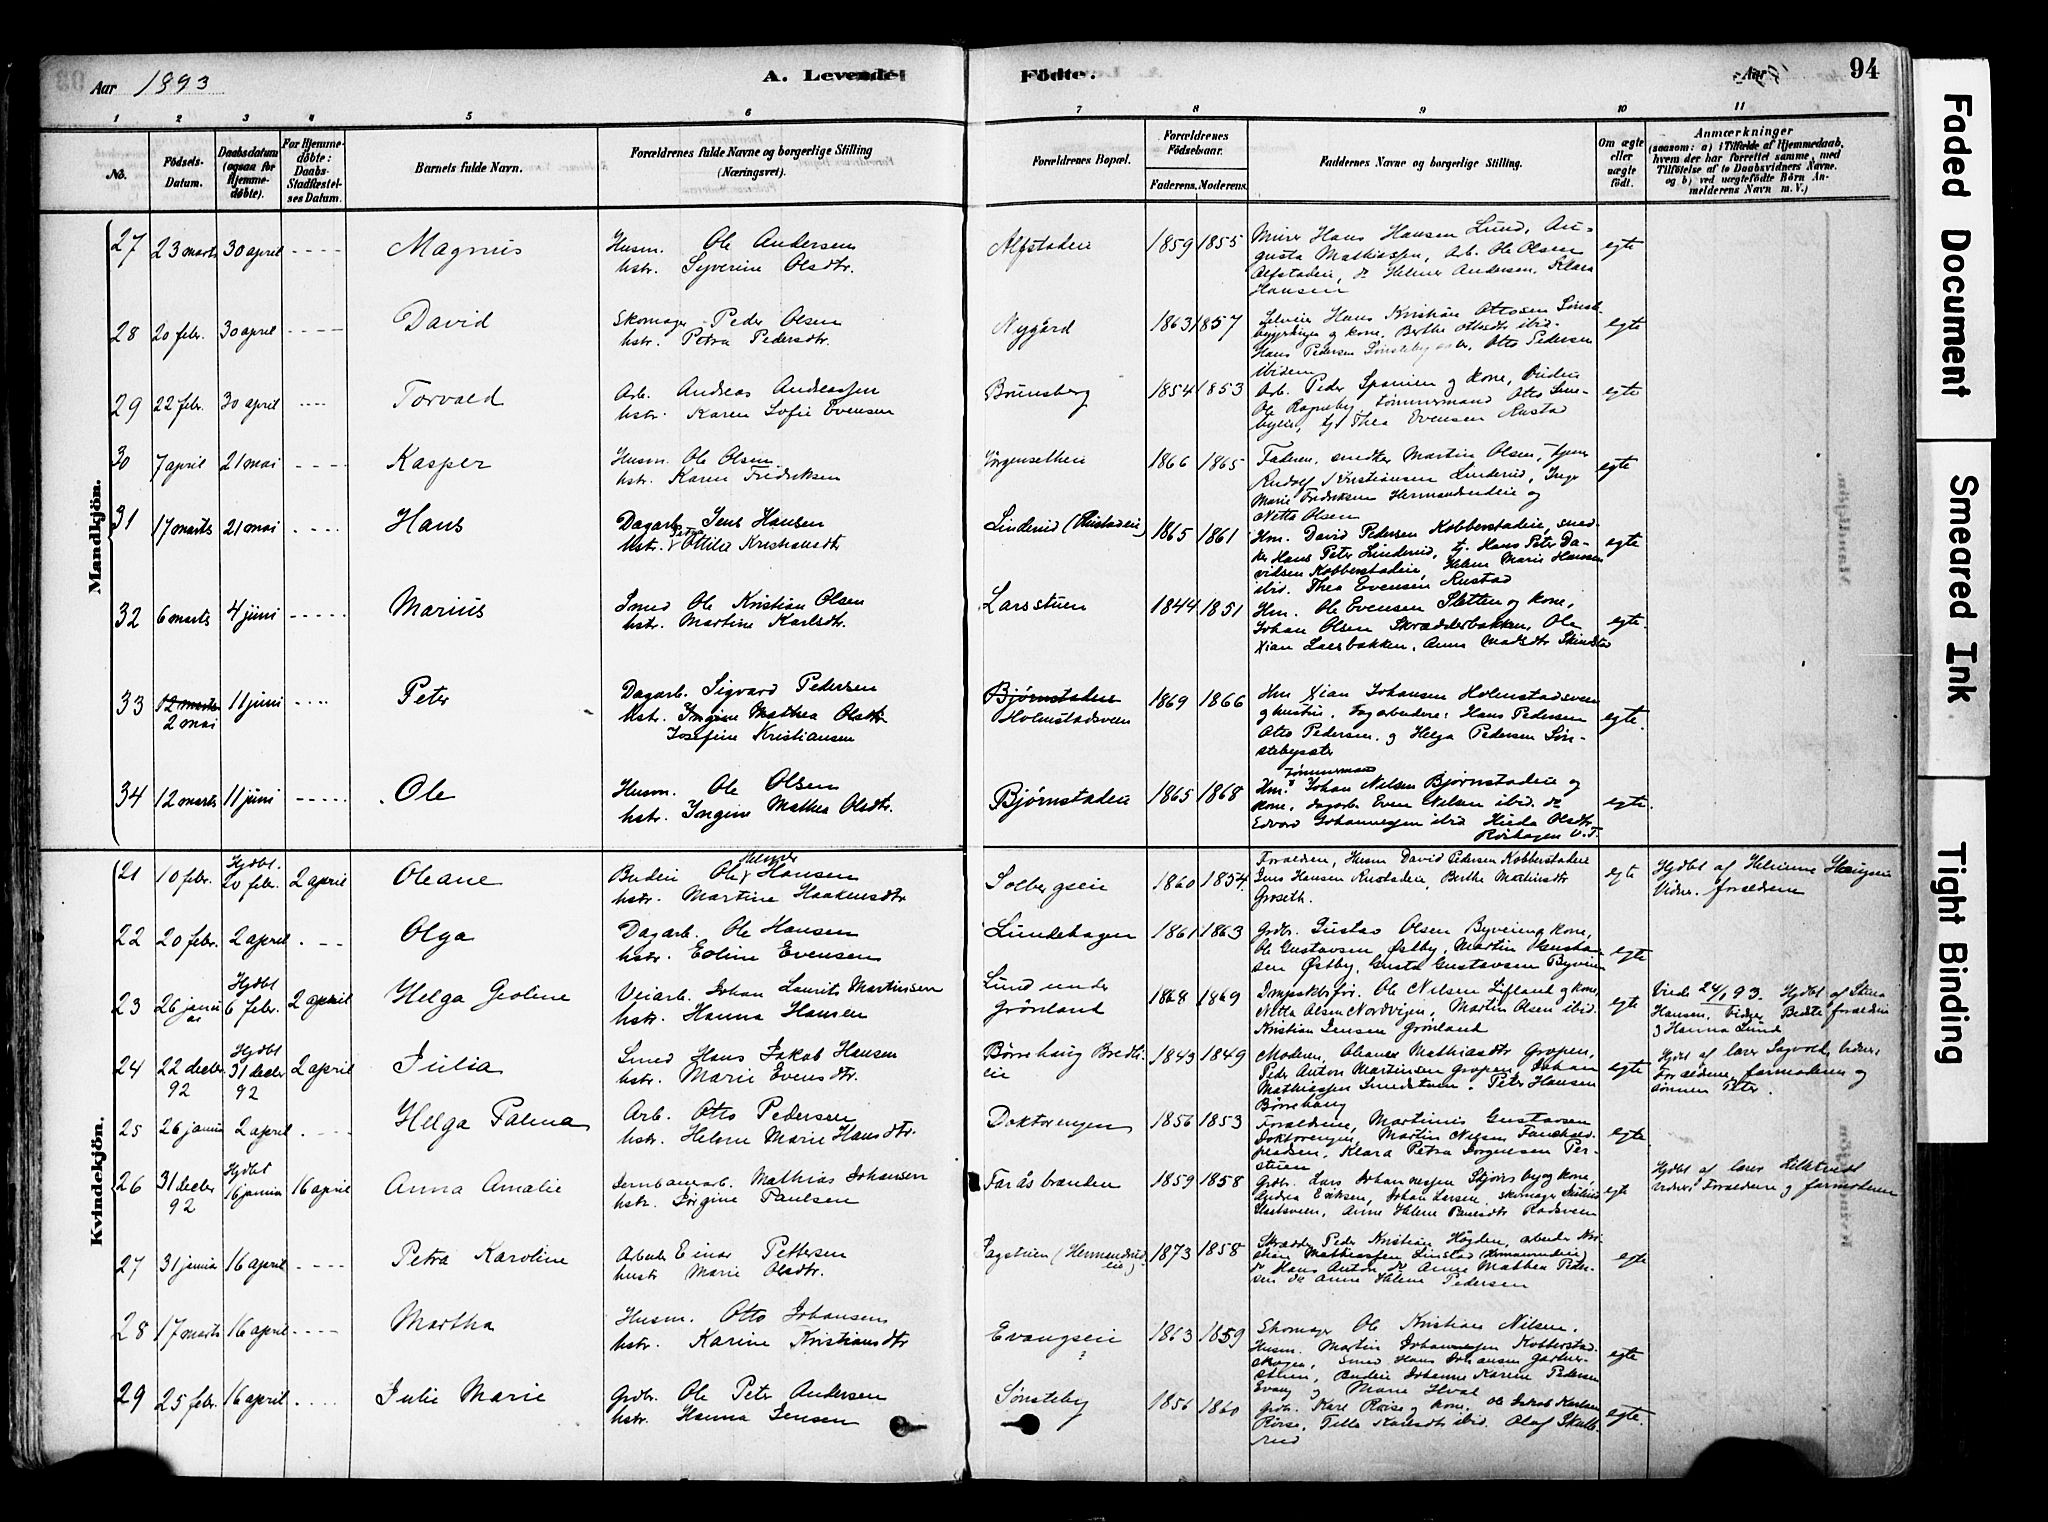 Aar 1893
A. Levendefödte.
Aar
94
1 2 3 4 5 6 7 8 9 10 11
No.
Födsels-Datum.
Daabsdatum (ogsaa for Hjemmedöbte).
For Hjemmedöbte: Daabs-Stadfæstelses Datum.
Barnets fulde Navn.
Forældrenes fulde Navne og borgerlige Stilling (Næringsvei).
Forældrenes Bopæl.
Forældrenes Födselsaar.
Faderens. Moderens.
Faddernes Navne og borgerlige Stilling.
Om ægte eller uægte födt.
Anmærkninger (saasom: a) i Tilfælde af Hjemmedaab, hvem der har forrettet samme, med Tilföielse af to Daabsvidners Navne, og b) ved uægtefödte Börn Anmelderens Navn m. V.)
Mandkjön.
27 23 marts 30 april Magnus
Husm. Ole Andersen
hstr. Syverine Olsdtr.
Alfstadeie 1859 1855
Murer Hans Hansen Lund, Au-
gusta Mathiassen, Arb. Ole Olsen
Alfstadeie, do Helmer Andersen, Klara
Hansen
egte
28 20 febr. 30 april David
Skomager Peder Olsen
hstr. Petra Pedersdtr.
Nygård 1863 1857
Hans Kristian Ottosen
og kone, Berthe Olsdtr ibid.
Hans Pedersen Sønsteby, Otto Pedersen
ibidem
egte
29 22 febr. 30 april Torvald
Arb. Andreas Andreassen
hstr. Karen Sofie Evensen
Brunsberg 1854 1853
Arb. Peder Spanien og kone,
Ole Ragneby, tømmermand Otto
tj. Thea Evensen Rustad
egte
30 7 april 21 mai Kasper
Husm. Ole Olsen
hstr. Karen Fredriksen
1866 1865
Faderen, Martin Olsen, tjener
Rudolf Kristiansen Linderud, Inga
Marie Fredriksen Hermanrudeie og
Netta Olsen
egte
31 17 marts 21 mai Hans
Dagarb. Jens Hansen
hstr. Petra Ottilie Kristiansdtr
Linderud (Rustadeie) 1865 1861
Hm. David Pedersen Kobberstadeie, smed-
Hans Peter Linderud, tj. Hans Peter Da-
vidsen Kobberstadeie, Helene Marie Hansen
ibid. Thea Evensen Rustad
egte
32 6 marts 4 juni Marius
Smed Ole Kristian Olsen
hstr. Martine Karlsdtr.
Larsstuen 1844 1851
Hm. Ole Evensen Sletten og kone,
Johan Olsen Skrædderbakken, Ole
Xian Laesbakken, Anne Madsdtr
egte.
33 12 marts 2 mai 11 juni Peter
Dagarb. Sigvard Pedersen
hstr. Ingine Mathea Olsdtr
Josefine Kristiansen
Bjørnstadeie
Holmstadsveen 1869 1866
Hm Xian Johansen Holmstadsveen
og hustru. Hans Pedersen
Otto Pedersen, og Helga Pedersen Søn-
stebysetr
egte.
34 12 marts 11 juni Ole
Husm. Ole Olsen
hstr. Ingine Mathea Olsdtr.
Bjørnstadeie 1865 1868
tømmermand
Hm. Johan Nilsen Bjørnstadeie og
kone, dagarb. Even Nilsen ibid. do
Edvard Johannessen ibid Hilda Olsdtr.
Røshagen V.T.
egte.
Kvindekjön.
21 10 febr. Hjdbt. 20 febr. 2 april Oleane
Budeie Ole Helmer Hansen
hstr. Martine Haakensdtr
Solbergseie 1860 1854.
Forældren, Husm David Pedersen Kobberstadeie
Jens Hansen Rustadeie, Berthe Martinsdtr
Groseth.
egte
Hjdbt af Helmine
Vidner. forældrene
22 20 febr. 2 april Olga
Dagarb. Ole Hansen
hstr. Eline Evensen
Lundehagen 1861 1863
Grdbr. Gustav Olsen Byveien og kone,
Ole Gustavsen Østby, Martin Gustav-
sen Østby, Gusta Gustavsen Byveien
egte
23 26 januar Hjdbt 6 febr. 2 april Helga Geoline
Veiarb. Johan Laurits Martinsen
hstr. Hanna Hansen
Lund under
Grønland 1868 1869
Ole Nilsen Lifland og kone,
Netta Olsen Nordvigen, Martin Olsen ibid.
Kristian Jensen Grønland
egte
24/1 93. Hjdbt af Stina
Hansen, Vidner Bedste forældrene
og Hanna Lund
24 22 decbr 92 Hjdbt 31 decbr 92 2 april Julia
Smed Hans Jakob Hansen
hstr. Marie Evensdtr.
Børrehaug Bredli-
eie 1843 1849
Moderen, Oleanna Mathiasdtr Gropen,
Peder Anton Martinsen Gropen, Johan
Mathiassen Smedstuen. Peter Hansen
Børrehaug
egte
Hjdbt af lærer Sagvold, Vidner.
Forældrene, farmoderen og
sønnen Peter.
25 26 januar 2 april Helga Palma
Arb. Otto Pedersen
hstr. Helene Marie Hansdtr.
Doktorengen 1856 1853
Forældrene, Martinus Gustavsen
Doktorengen, Martin Nilsen
Klara Petra Jørgensen Per-
stuen
egte
26 31 decbr 92 Hjdbt 16 januar 16 april Anna Amalie
Jernbanearb. Mathias Johansen
hstr. Jørgine Paulsen
Faråsbrænden 1859 1858
Grdbr. Lars Johannessen Skjønsby og kone,
Andrea Eriksen, Johan Larsen, skomager
Anne Helene Paulsdtr Rodsveen
egte
Hjdbt af lærer
vidner Forældrene og farmoderen
27 31 januar 16 april Petra Karoline
Arbeider Einar Pettersen
hustr Marie Olsdtr.
Sagstuen (Hermanrud-
eie) 1873 1858
Skrædder Peder Kristian Høglien, arbeider Kri-
stian Mathiassen Linstad (Hermanrudeie)
do Hans Anton, do Anne Mathea Peder-
sen do Anne Helene Pedersen
egte
28 17 marts 16 april Martha
Husm. Otto Johansen
hstr. Karine Kristiansdtr
Evangseie
?
1863 1859
Skomager Ole Kristian Nilsen.
Husm. Martin Johannessen Kobberstad-
skogen, Smed Hans Johansen Gartner-
sthuen, Budeie Johanne Karine Pedersen
Evang og Marie Hval
egte
29 25 febr. 16 april Julie Marie
Grdbr. Ole Peter Andersen
hstr. Hanna Jensen
Sønsteby 1856 1860
Grdbr. Karl Røise og kone, Ole Jakob Karlsen
Røise, Tilla Karlsdtr ibid. Olaf Skulle-
rud
egte.
Faded Document
Smeared Ink
Tight Binding